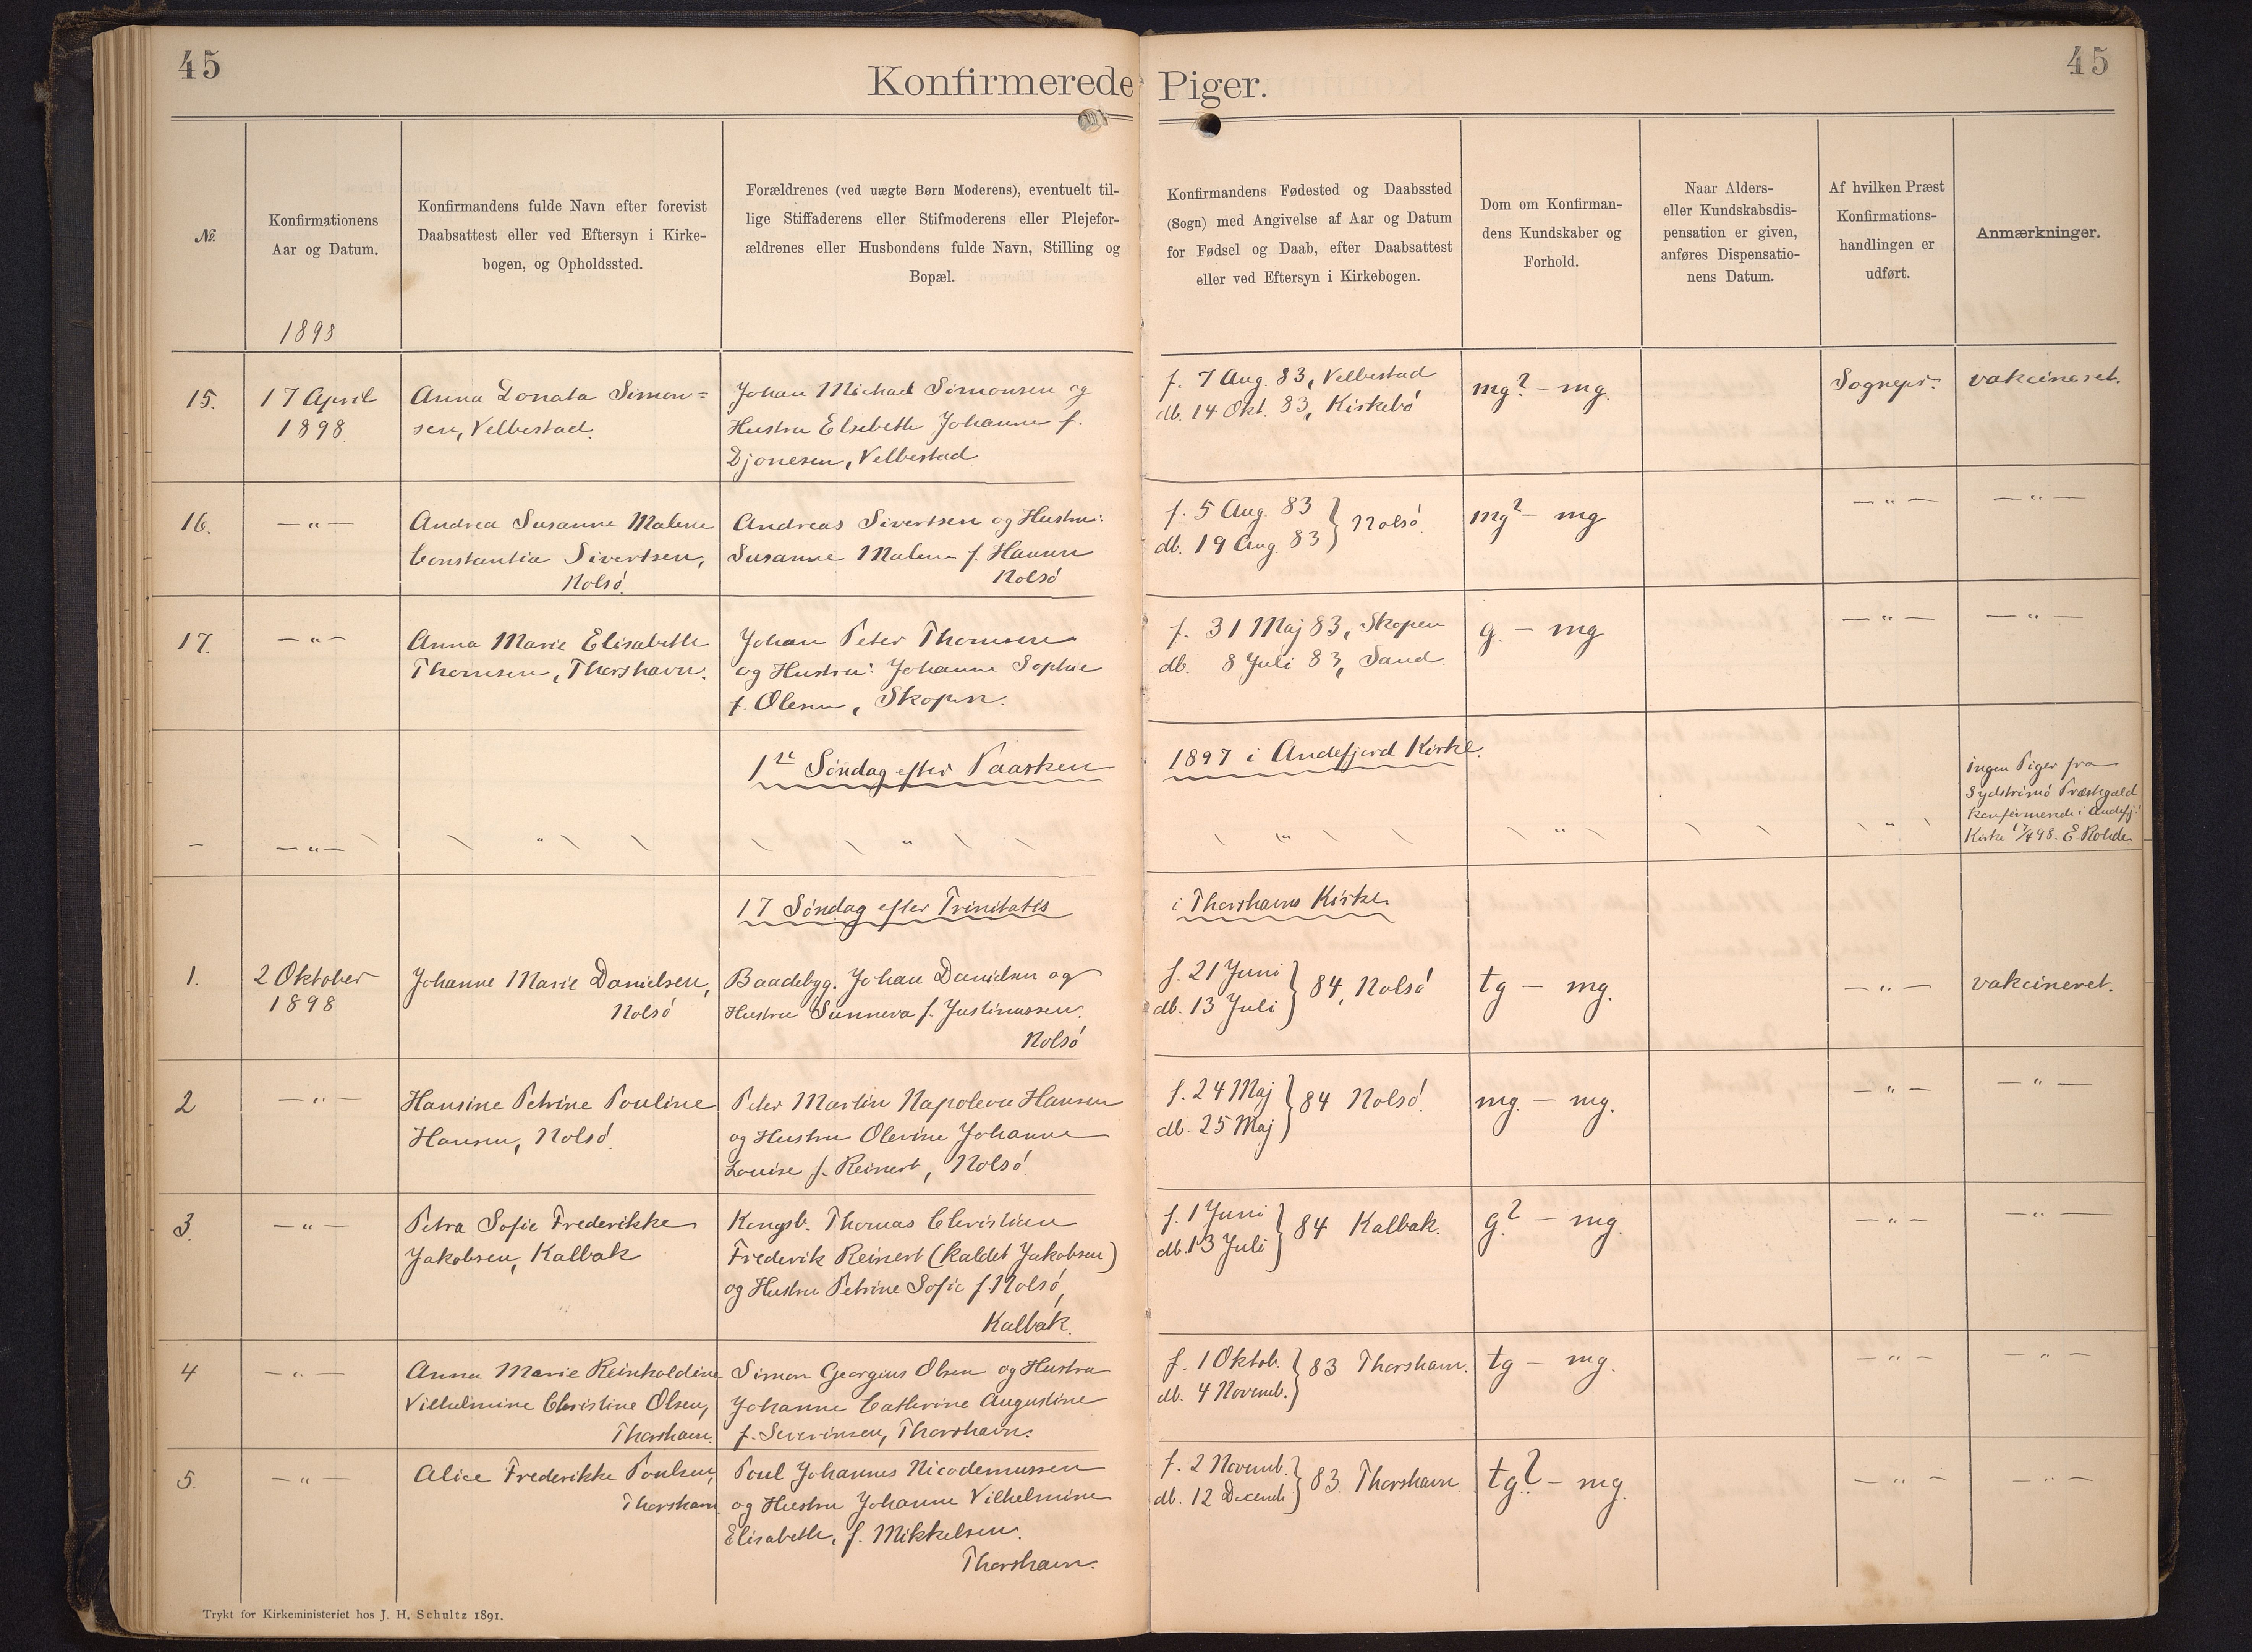 45
45
Konfirmerede Piger.
No.
Konfirmationens
Aar og Datum.
Konfirmandens fulde Navn efter forevist
Daabsattest eller ved Eftersyn i Kirke-
bogen, og Opholdssted.
Forældrenes (ved uægte Børn Moderens), eventuelt til-
lige Stiffaderens eller Stifmoderens eller Plejefor-
ældrenes eller Husbondens fulde Navn, Stilling og
Bopæl.
Konfirmandens Fødested og Daabssted
(Sogn) med Angivelse af Aar og Datum
for Fødsel og Daab, efter Daabsattest
eller ved Eftersyn i Kirkebogen.
Dom om Konfirman-
dens Kundskaber og
Forhold.
Naar Alders-
eller Kundskabsdis-
pensation er given,
anføres Dispensatio-
nens Datum.
Af hvilken Præst
Konfirmations-
handlingen er
udført.
Anmærkninger.
1898
15.
17 April
1898
Anna Donata Simon=
sen, Velbestad.
Johan Michael Simonsen og
Hustru Elsebeth Johanne f.
Djonesen, Velbestad
f. 7 Aug. 83, Velbestad
db. 14 Okt. 83, Kirkebö
mg? - mg.
Sognepr.
vakcineret.
16.
— " —
Andrea Susanne Malene
Constantia Sivertsen,
Nolsö.
Andreas Sivertsen og Hustru:
Susanne Malene f. Hansen
Nolsö
f. 5 Aug. 83
db. 19 Aug. 83 } Nolsö.
mg? - mg
— " —
— " —
17.
— " —
Anna Marie Elisabeth
Thomsen, Thorshavn.
Johan Peter Thomsen
og Hustru: Johanne Sophie
f. Olesen, Skopen.
f. 31 Maj 83, Skopen
db. 8 Juli 83, Sand.
g. - mg
— " —
— " —
1ste Söndag efter Paasken
1897 i Andefjord Kirke.
Ingen Piger fra
Sydströmö Præstegæld
Konfirmerede i Andefj.
Kirke 17/4 98. E. Rohde.
— — " —
"
"
"
"
"
17 Söndag efter Trinitatis
i Thorshavns Kirke.
1.
2 Oktober
1898
Johanne Marie Danielsen,
Nolsö
Baadebyg. Johan Danielsen og
Hustru Sunneva f. Justinussen.
Nolsö
f. 21 Juni
db. 13 Juli } 84, Nolsö
tg - mg.
— " —
vakcineret.
2
— " —
Hansine Petrine Pouline
Hansen, Nolsö.
Peter Martin Napoleon Hansen
og Hustru Olevine Johanne
Louise f. Reinert, Nolsö.
f. 24 Maj
db. 25 Maj } 84 Nolsö.
mg. - mg.
— " —
— " —
3.
— " —
Petra Sofie Frederikke
Jakobsen, Kalbak
Kongsb. Thomas Christian
Frederik Reinert (kaldet Jakobsen)
og Hustru Petrine Sofie f. Nolsö,
Kalbak.
f. 1 Juni
db. 13 Juli } 84 Kalbak.
g? - mg.
— " —
— " —
4
— " —
Anna Marie Reinholdine
Vilhelmine Christine Olsen,
Thorshavn.
Simon Georgius Olsen og Hustru
Johanne Cathrine Augustine
f. Severinsen, Thorshavn.
f. 1 Oktob.
db. 4 Novemb. } 83 Thorshavn.
tg - mg.
— " —
— " —
5.
— " —
Alice Frederikke Poulsen,
Thorshavn
Poul Johannes Nicodemussen
og Hustru Johanne Vilhelmine
Elisabeth, f. Mikkelsen.
Thorshavn.
f. 2 Novemb.
db. 12 Decemb } 83. Thorshavn.
tg? - mg.
— " —
— " —
Trykt for Kirkeministeriet hos J. H. Schultz 1891.